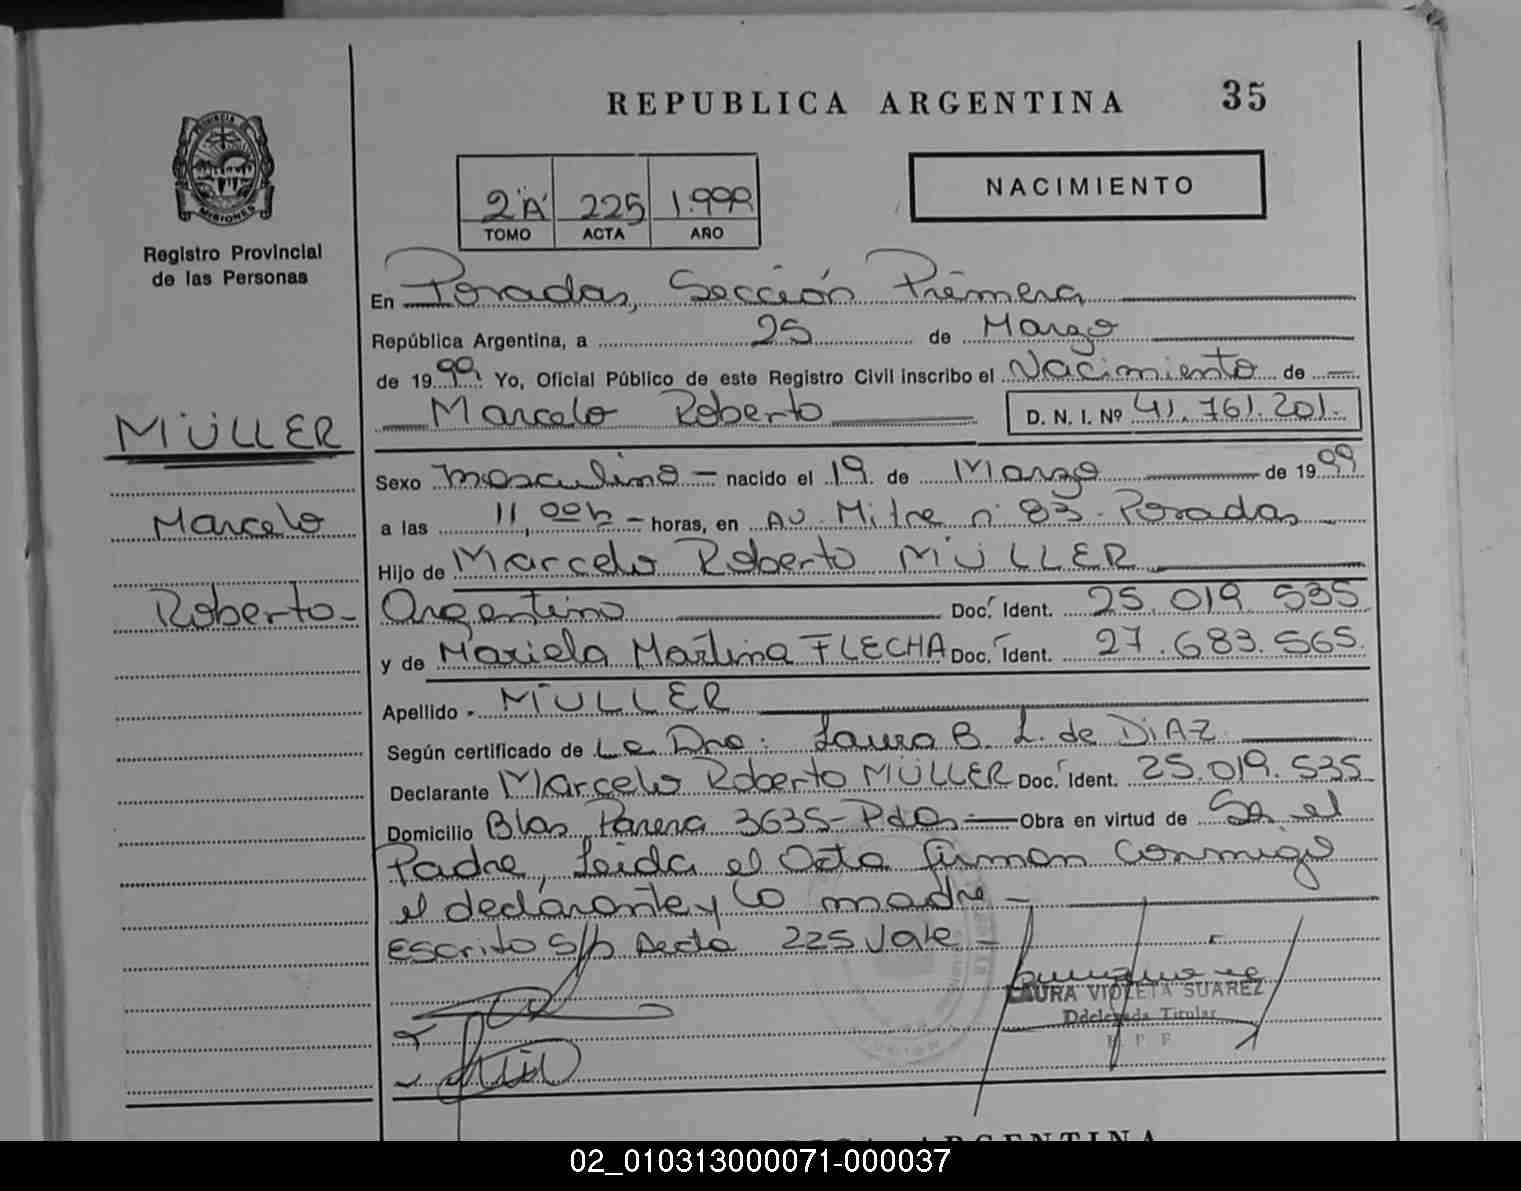 REPUBLICA ARGENTINA 35
PROVINCIA DE
MISIONES
Registro Provincial
de las Personas
2"A" 225 1.999
TOMO ACTA AÑO
NACIMIENTO
En Posadas, Sección Primera
República Argentina, a 25 de Marzo
de 1999 Yo, Oficial Público de este Registro Civil inscribo el Nacimiento de
Marcelo Roberto D. N. I. Nº 41.761.201.
MÜLLER
Marcelo
Roberto-
Sexo masculino - nacido el 19 de Marzo de 1999
a las 11,00h - horas, en Av. Mitre nº 83 - Posadas
Hijo de Marcelo Roberto MÜLLER
Argentino Doc. Ident. 25.019.535
y de Mariela Martina FLECHA Doc. Ident. 27.683.565.
Apellido - MÜLLER
Según certificado de La Dra: Laura B. L. de DIAZ
Declarante Marcelo Roberto MÜLLER Doc. Ident. 25.019.535
Domicilio Blas Parera 3635- Pdas - Obra en virtud de Ser el
Padre, Leida el Acta firman conmigo
el declarante y la madre -
Escrito S/b Acta 225 Vale -
LAURA VIOLETA SUAREZ
Ddelegada Titular
ARGENTINA
02_010313000071-000037